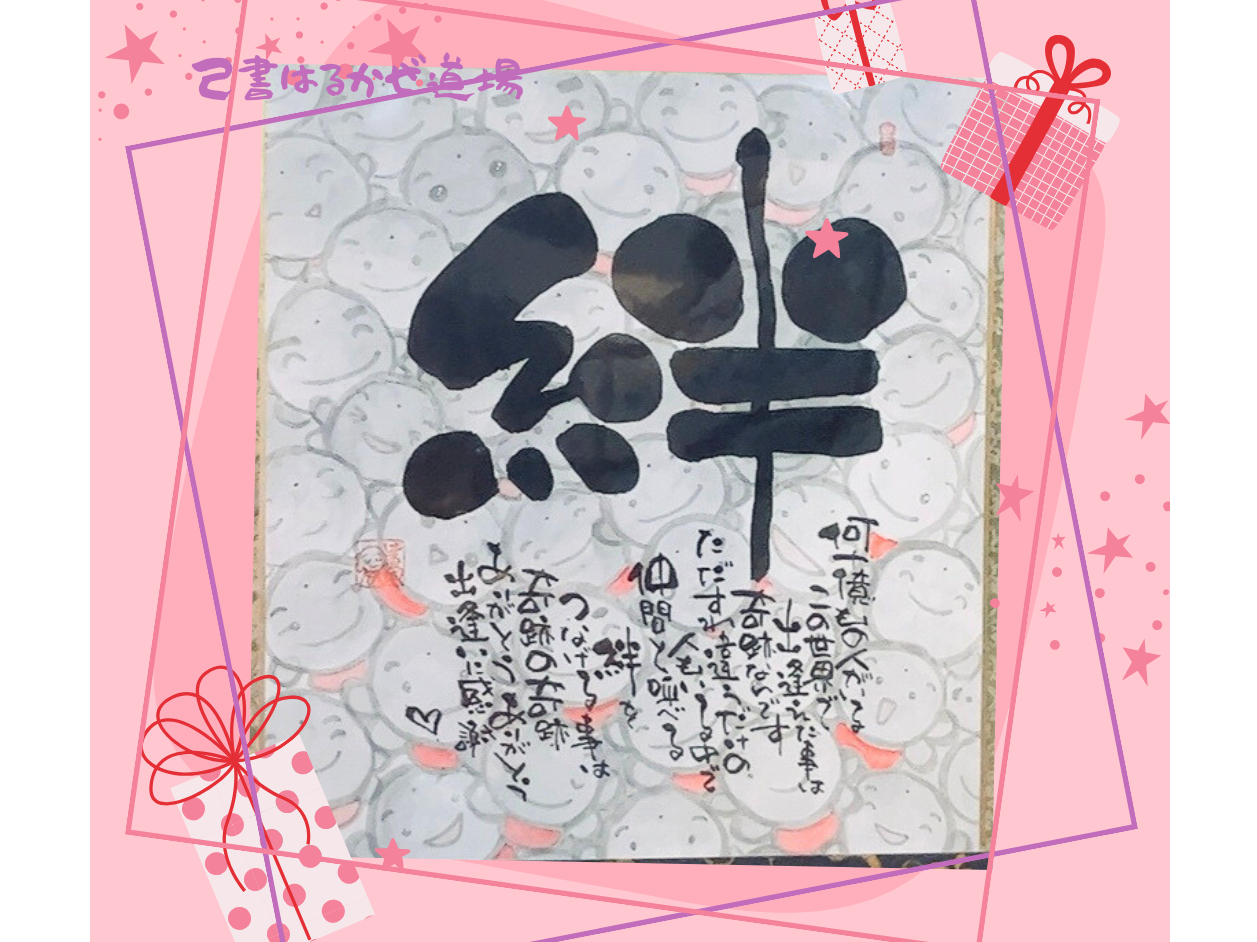 己書はるかぜ道場
絆
何十億もの人がいる
この世界で
出逢えた事は
奇跡なんです
ただすれ違うだけの
人もいる中で
仲間と呼べる
絆を
つなげる事は
奇跡の奇跡
ありがとうありがとう
出逢いに感謝